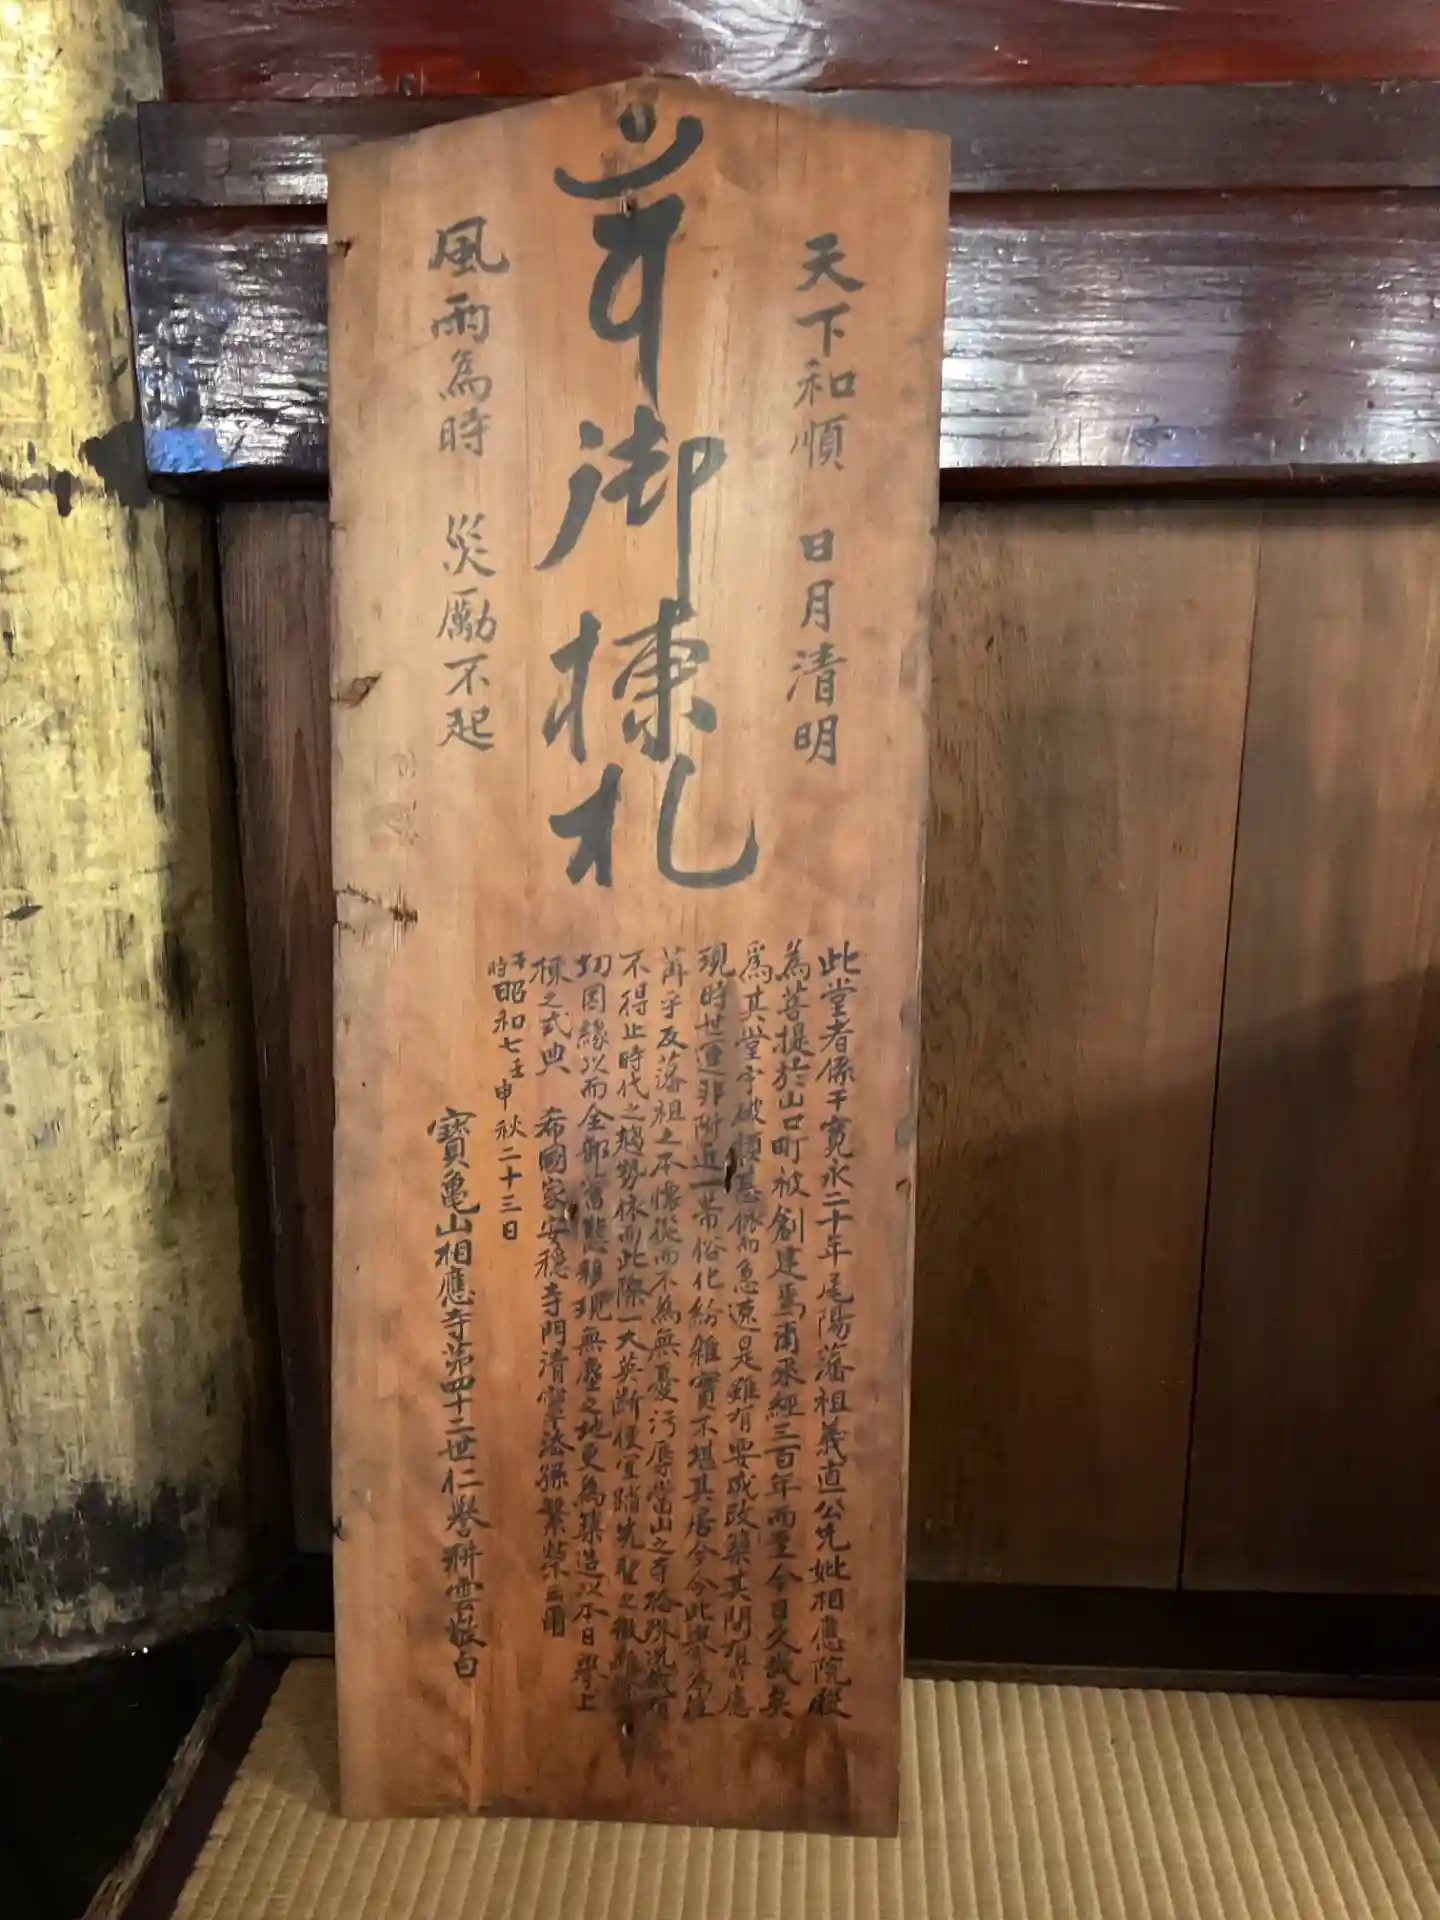 天下和順 日月清明
御棟札
風雨為時 災励不起
此堂者係于寛永二十年尾陽藩祖義直公先妣相應院殿
為菩提於山口町被創建焉爾来経三百年而至今日久哉矣
為其堂宇破損甚依而急速是雖有要成改築其間有時應
現時世運非附近一帯俗化紛雑實不堪其居今今此
宇反藩祖之本懐従而不為無憂汚辱當山之寺格
不得止時代之趨勢依而此際一大英断便宜踏先聖之
切因縁以而全部舊態移現無塵之地更為築造以本日挙上
棟之式典 希國家安穏寺門清寧法孫繁栄云爾
于時昭和七壬申秋二十三日
寶亀山相應寺第四十二世仁誉耕雲敬白